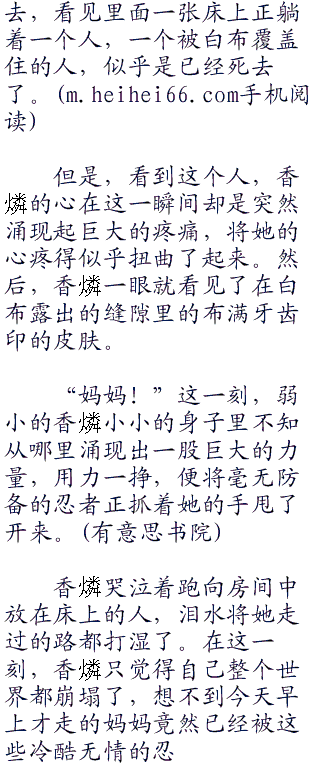 去，看见里面一张床上正躺
着一个人，一个被白布覆盖
住的人，似乎是已经死去
了。(m.heihei66.com手机阅
读)
但是，看到这个人，香
燐的心在这一瞬间却是突然
涌现起巨大的疼痛，将她的
心疼得似乎扭曲了起来。然
后，香燐一眼就看见了在白
布露出的缝隙里的布满牙齿
印的皮肤。
“妈妈！”这一刻，弱
小的香燐小小的身子里不知
从哪里涌现出一股巨大的力
量，用力一挣，便将毫无防
备的忍者正抓着她的手甩了
开来。(有意思书院)
香燐哭泣着跑向房间中
放在床上的人，泪水将她走
过的路都打湿了。在这一
刻，香燐只觉得自己整个世
界都崩塌了，想不到今天早
上才走的妈妈竟然已经被这
些冷酷无情的忍